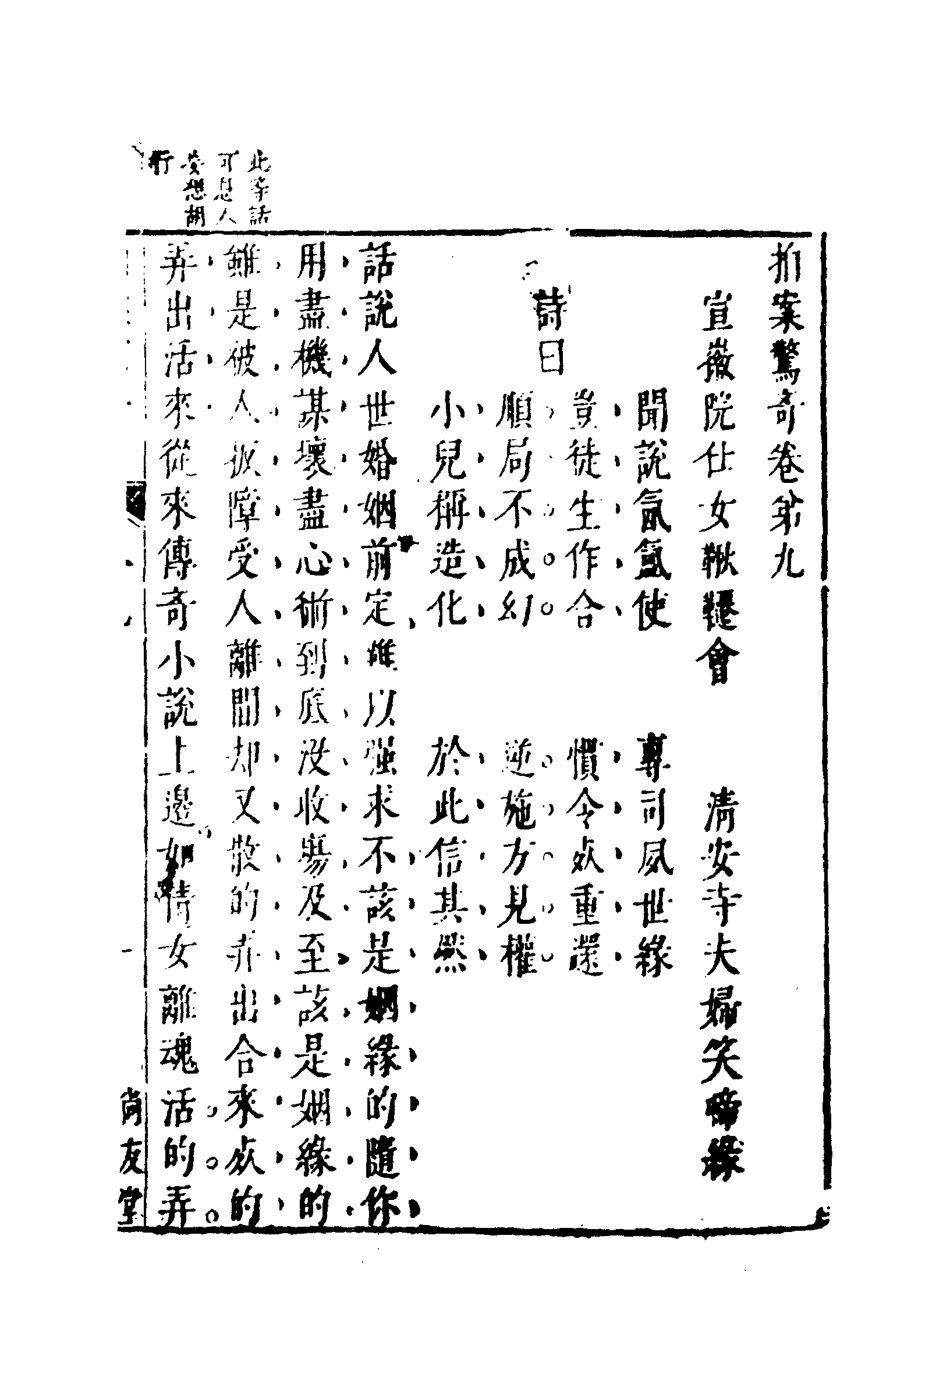 拍案驚奇卷第九
宣徽院仕女鞦韆會　清安寺夫婦笑啼緣
詩曰
聞說氤氳使　專司夙世緣
豈徒生作合　慣令死重還
順局不成幻　逆施方見權
小兒稱造化　於此信其然
話說人世婚姻前定難以强求不該是姻緣的隨你
用盡機謀壞盡心術到底没收塲及至該是姻緣的
雖是被人扳障受人離間却又散的弄出合來死的
弄出活來從來傳奇小說上邊如倩女離魂活的弄
此等話
可息人
妄想胡
行
尚友堂